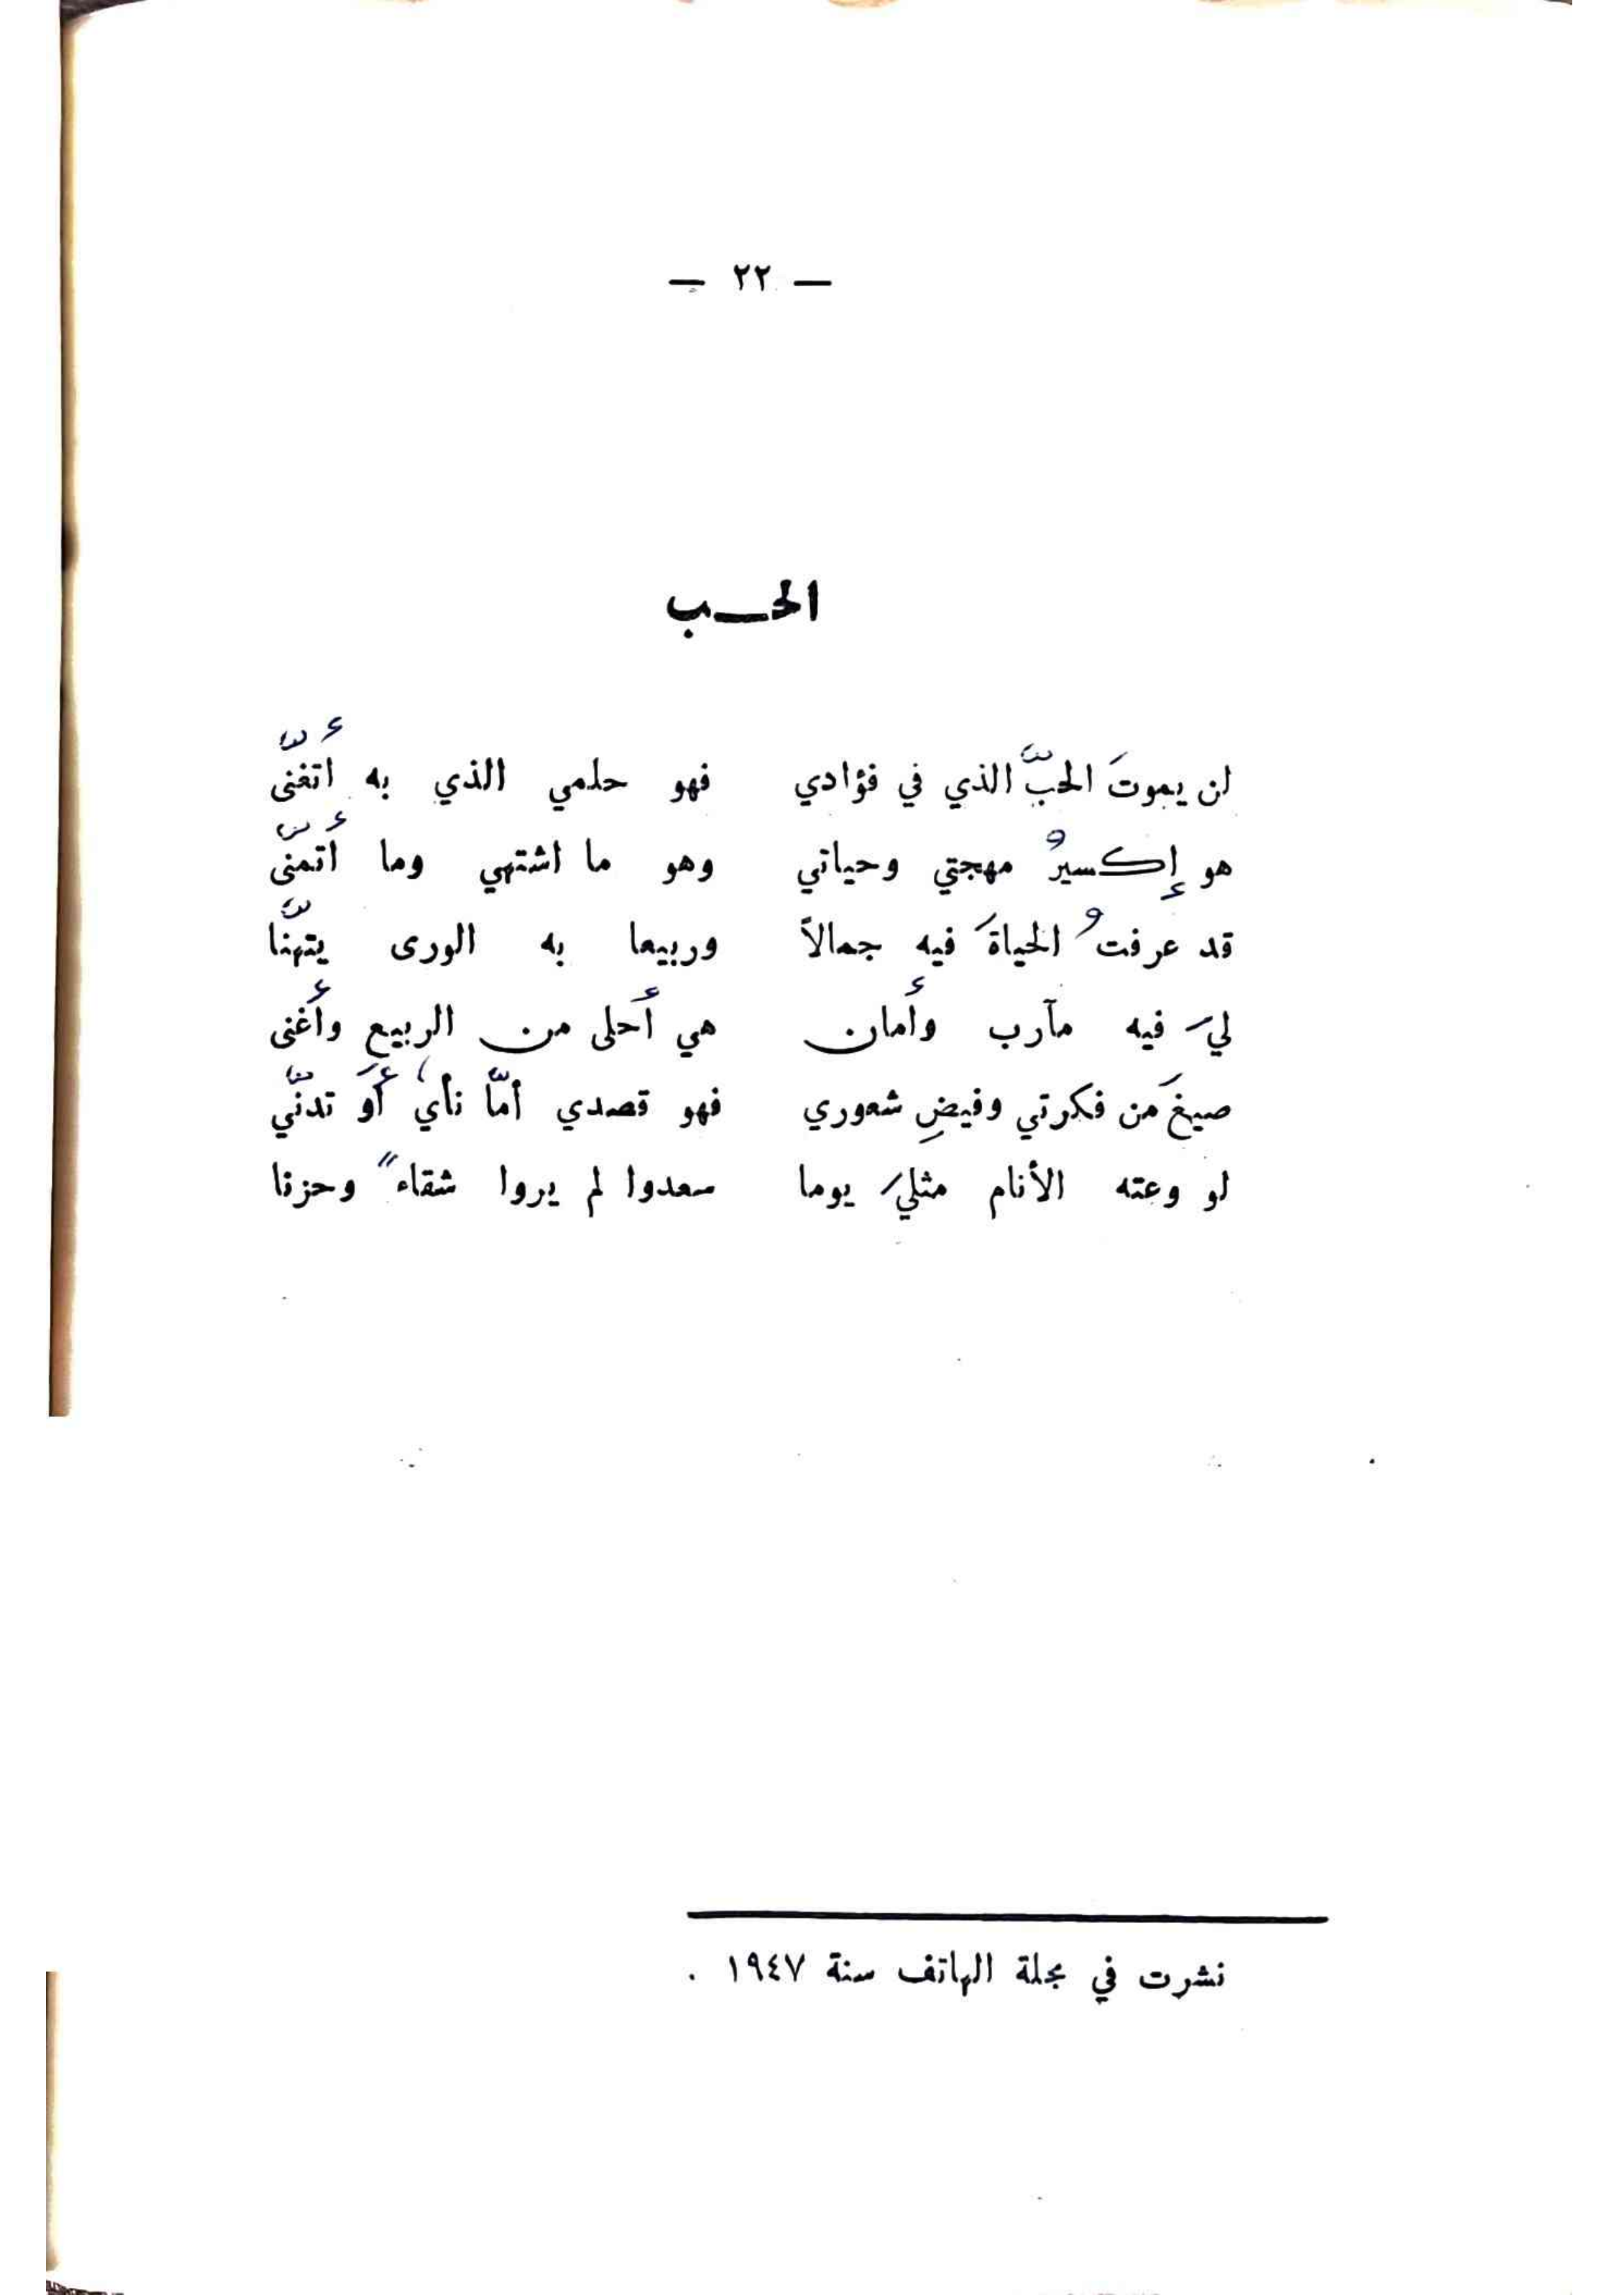 — ٢٢ —
الحـــب
لن يموتَ الحبُّ الذي في فؤادي فهو حلمي الذي به أتغنّى
هو إكسيرُ مهجتي وحياتي وهو ما اشتهي وما أتمنّى
قد عرفتُ الحياةَ فيه جمالاً وربيعا به الورى يتهنّا
ليَ فيه مآرب وأمان هي أحلى من الربيعِ وأغنى
صيغَ من فكرتي وفيضِ شعوري فهو قصدي أمّا نأي أوَ تدنّي
لو وعته الأنام مثليَ يوما سعدوا لم يروا شقاءً وحزنا
نشرت في مجلة الهاتف سنة ١٩٤٧ .